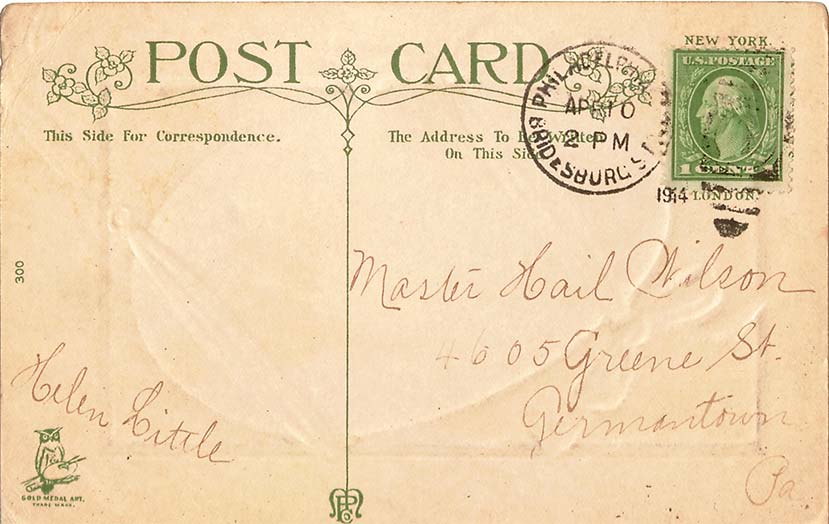 POST CARD
This Side For Correspondence.
The Address To Be Written
On This Side
NEW YORK
U.S. POSTAGE
1 CENT
LONDON.
PHILADELPHIA
APR 10
2 PM
BRIDESBURG STA
1914
300
Master Hail Wilson
4605 Greene St.
Germantown
Pa
Helen Little
GOLD MEDAL ART.
TRADE MARK.